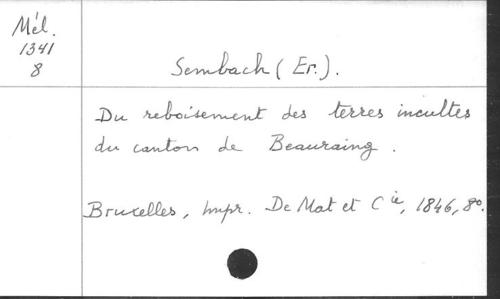 Mél.
1341
8
Sembach (Er.).
Du reboisement des terres incultes
du canton de Beauraing.
Bruxelles, Impr. De Mat et Cie, 1846, 8º.